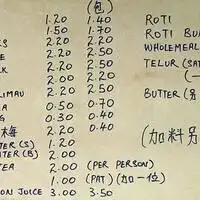 (包)
1.20 1.40 ROTI
1.50 1.70 ROTI
2.20 2.20 WHOLEMEAL
2.20 2.50 TELUR
2.20 2.50
2.00 2.20
LIMAU 2.20 2.50 BUTTER
0.50 0.70
0.30 0.40
梅 0.30 0.40 (加料另
(S) 1.20
(B) 2.00
TEA 2.00 (PER PERSON)
1.00 (PAT) (加一位)
JUICE 3.00 3.50